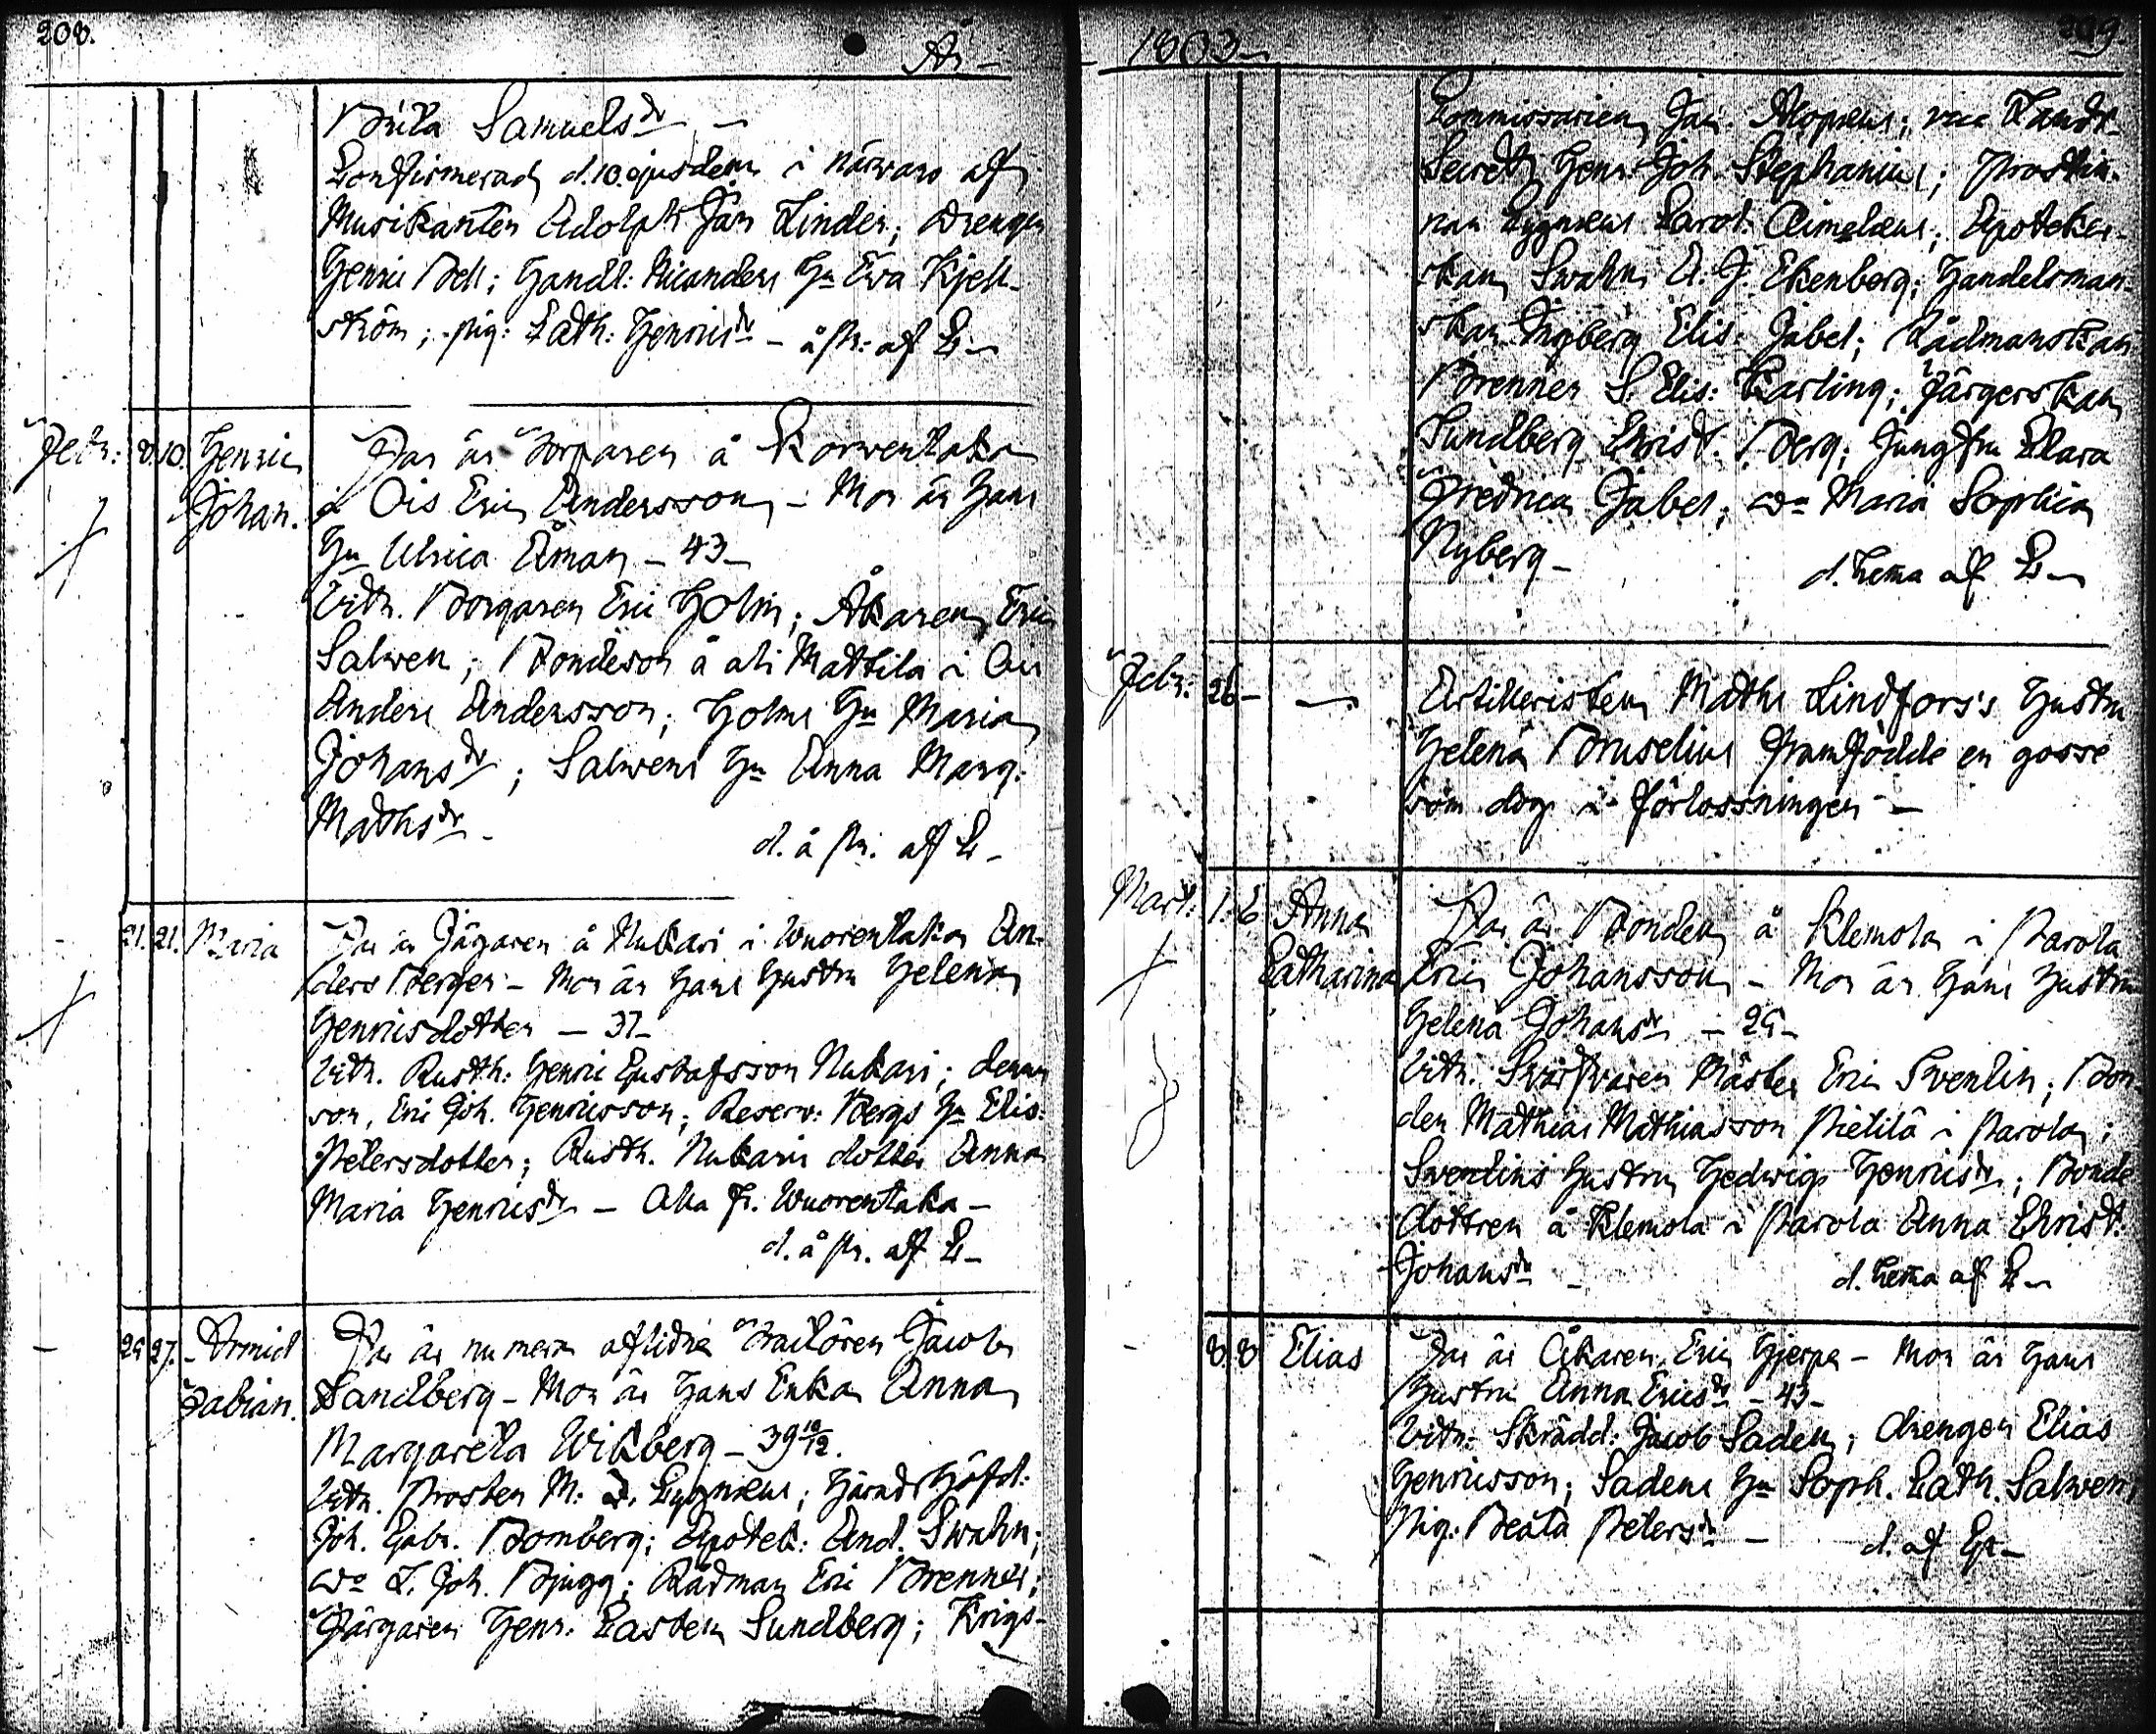 208.
År
Brita Samuelsdr
Confirmerad d. 10. ejusdem i närvaro af
Musikanten Adolph Joh Linder; Drengen
Henric Bell; Handl: Nicanders Hu Eva Kjell-
ström; pig: Cath: Henricsdr - å Pr: af L-
Febr: 8. 10. Henric Far är Torparen å Korwentaka
Johan. i Ois Eric Andersson - Mor är hans
Hu Ulrica Åman - 43 -
Vittn. Borgaren Eric Holm; Åkaren Eric
Salwen; Bondeson å ali Mattila i Ois
Anders Andersson; Holms Hu Maria
Johansdr; Salwens Hu Anna Marg:
Mathsdr - d. å Pr. af L-
21. 21. Maria Far är Jägaren å Nukari i Wuorentaka An-
ders Berger - Mor är hans hustru Helena
Henricsdotter - 37 -
Vittn. Rusth: Henric Gustafsson Nukari; dennes
son, Eric Joh. Henricsson; Reserv: Bergs Hu Elis:
Petersdotter; Rusth. Nukaris dotter Anna
Maria Henricsdr - Alla fr. Wuorentaka -
d. å Pr. af L-
25 27. Armid Far är numera aflidne Traitören Jacob
Fabian. Sandberg - Mor är hans Enka Anna
Margareta Wikberg - 39 10/12.
Vittn. Prosten M. Lygnæus; Häradshöfd:
Joh. Gabr. Bomberg; Apotek: And. Swahn;
Joh. Bjugg; Rådman Eric Brenner;
Färgaren Henr. Carsten Sundberg; Krigs-
1803
209.
Commissarien Alopæus; Landt-
Secret: Henr Joh Stephanius; Prostin-
nan Lygnæus Carol: Aimelæus; Apotekar-
skan Swahn A. J. Ekenberg; Handelsman-
skan Ingberg Elis: Gabel; Rådmanskan
Brenner S. Elis: Karling; Färgerskan
Sundberg Christ. Berg; Jungfru Clara
Fredrica Gabel; Maria Sophia
Nyberg - d. hema af L-
Febr: 26 - Artilleristen Maths Lindfors's Hustru
Helena Bruselius framfödde en gosse
som dog i förlossningen -
Mart: 1. 6 Anna Far är Bonden å Klemola i Parola
Catharina Eric Johansson - Mor är hans hustru
Helena Johansdr - 25 -
Vittn: Swarfvaren Mäster Eric Swenlin; Bon
den Mathias Mathiasson Pietilä i Parola;
Swenlins hustru Hedwig Henricsdr; Bonde
dottren å Klemola i Parola Anna Christ:
Johansdr - d. hema af L-
8. 8 Elias Far är Åkaren Eric Hjerpe - Mor är hans
hustru Anna Ericsdr - 43 -
Vittn: Skrädd: Jacob Saden; drengen Elias
Henricsson; Sadens Hu Soph. Cath. Salwen;
Pig: Beata Petersdr - d. af